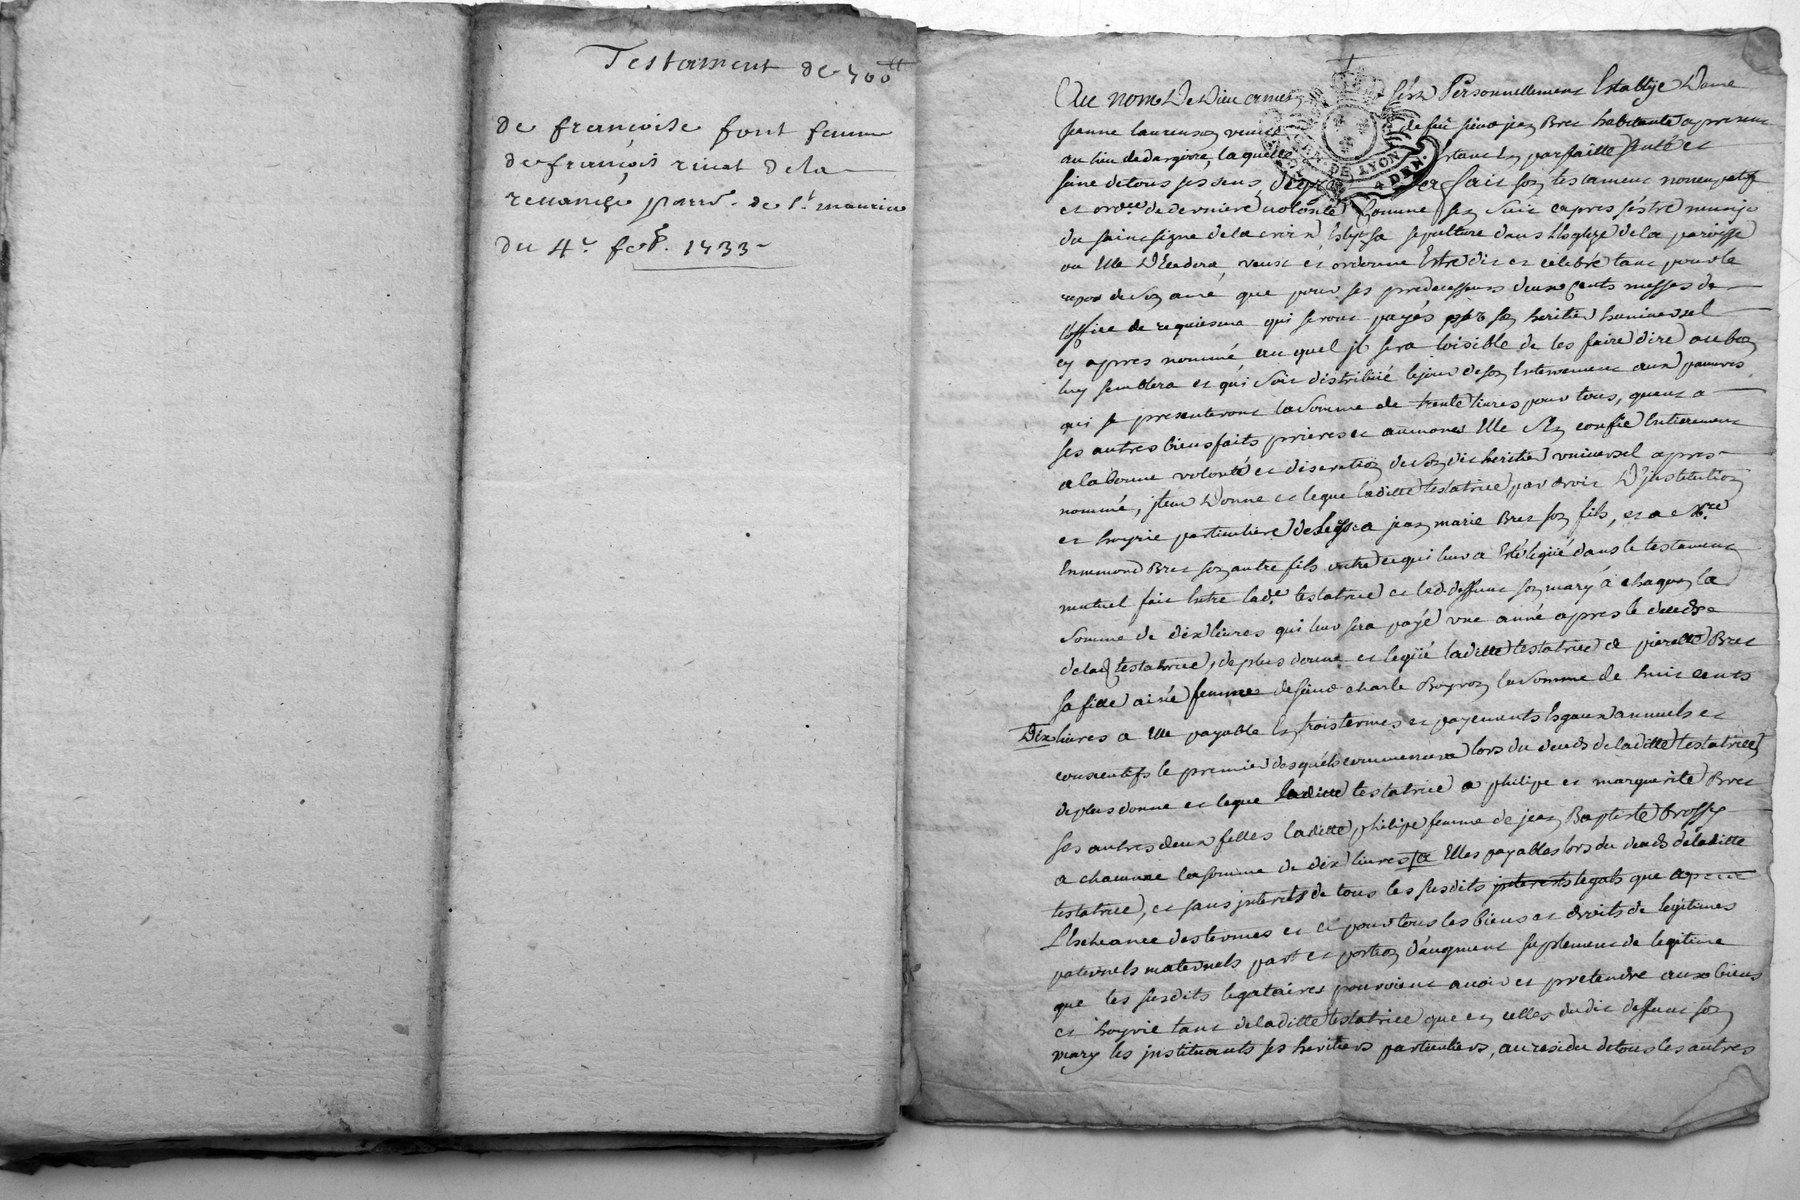 Testament de 400ᵗᵗ
de francoise font femme
de françois rivat de la
revanche parr. de Sᵗ maurice
du 4ᵉ feb. 1733
Au nom De Dieu amen, sest Personnellement Establye Dame
jeanne laurenson veuve de feu sieur jean Bret habitante a present
au lieu de dargoire, laquelle Estant En parfaitte santé et
saine de tous ses sens, de gré a fait son testament noncupatif
et ordce de derniere volonté Comme sen suit apres sêstre munye
du saint signe de la croix, Eslit sa sepulture dans l'Esglize de la paroisse
ou Elle Decedera, veust et ordonne Estre dit et celebré tant pour le
repos de son ame que pour ses predecesseurs deux Cents messes de
l'office de requiesme qui seront payés par son heritier huniversel
cy apres nommé au quel jl sera loisible de les faire dire ou bon
luy semblera et qu'i soit distribüé le jour de son Enterrement aux pauvres
qui se presenteront la somme de trente livres pour tous, quant a
ses autres biensfaits prieres et aumones Elle s'En confie Entierement
a la bonne volonté et discretion de son dit heritier vniversel apres
nommé, jtem Donne et legue laditte testatrice par droit D'jnstitution
et hoyrie particuliere de legs a jean marie Bret son fils, et a Mre
Ennemond Bret son autre fils outre ce qui leur a Esté legüé dans le testament
mutuel fait Entre lade testatrice et led. deffunt son mary a chaqun la
somme de dix livres qui leur sera payé vne anné apres le decéds
de lad testatrice, de plus donne et legüe laditte testatrice a pierette Bret
sa fille ainé femme de sieur charle Boyron la somme de huit cents
Dix livres a Elle payable En trois termes et payements Esgaux annuels et
consecutifs le premier desquéls commencera lors du decéds de laditte testatrice
de plus donne et legue laditte testatrice a philipe et marguerite Bret
ses autres deux filles laditte philipe femme de jean Baptiste brossy
a chacune la somme de dix livres a Elles payables lors du decéds de laditte
testatrice, et sans jnterets de tous les susdits jnterests legats que apres
L'Escheance des termes et ce pour tous les biens et droits de legitimes
paternels maternels part et portion d'augment suplement de legitime
que les susdits legataires pourroient avoir et pretendre aux biens
et hoyrie tant de laditte testatrice que en celles dudit deffunt son
mary les jnstituants ses heritiers particuliers, au residu de tous les autres
GEN. DE LYON
4 DEN.